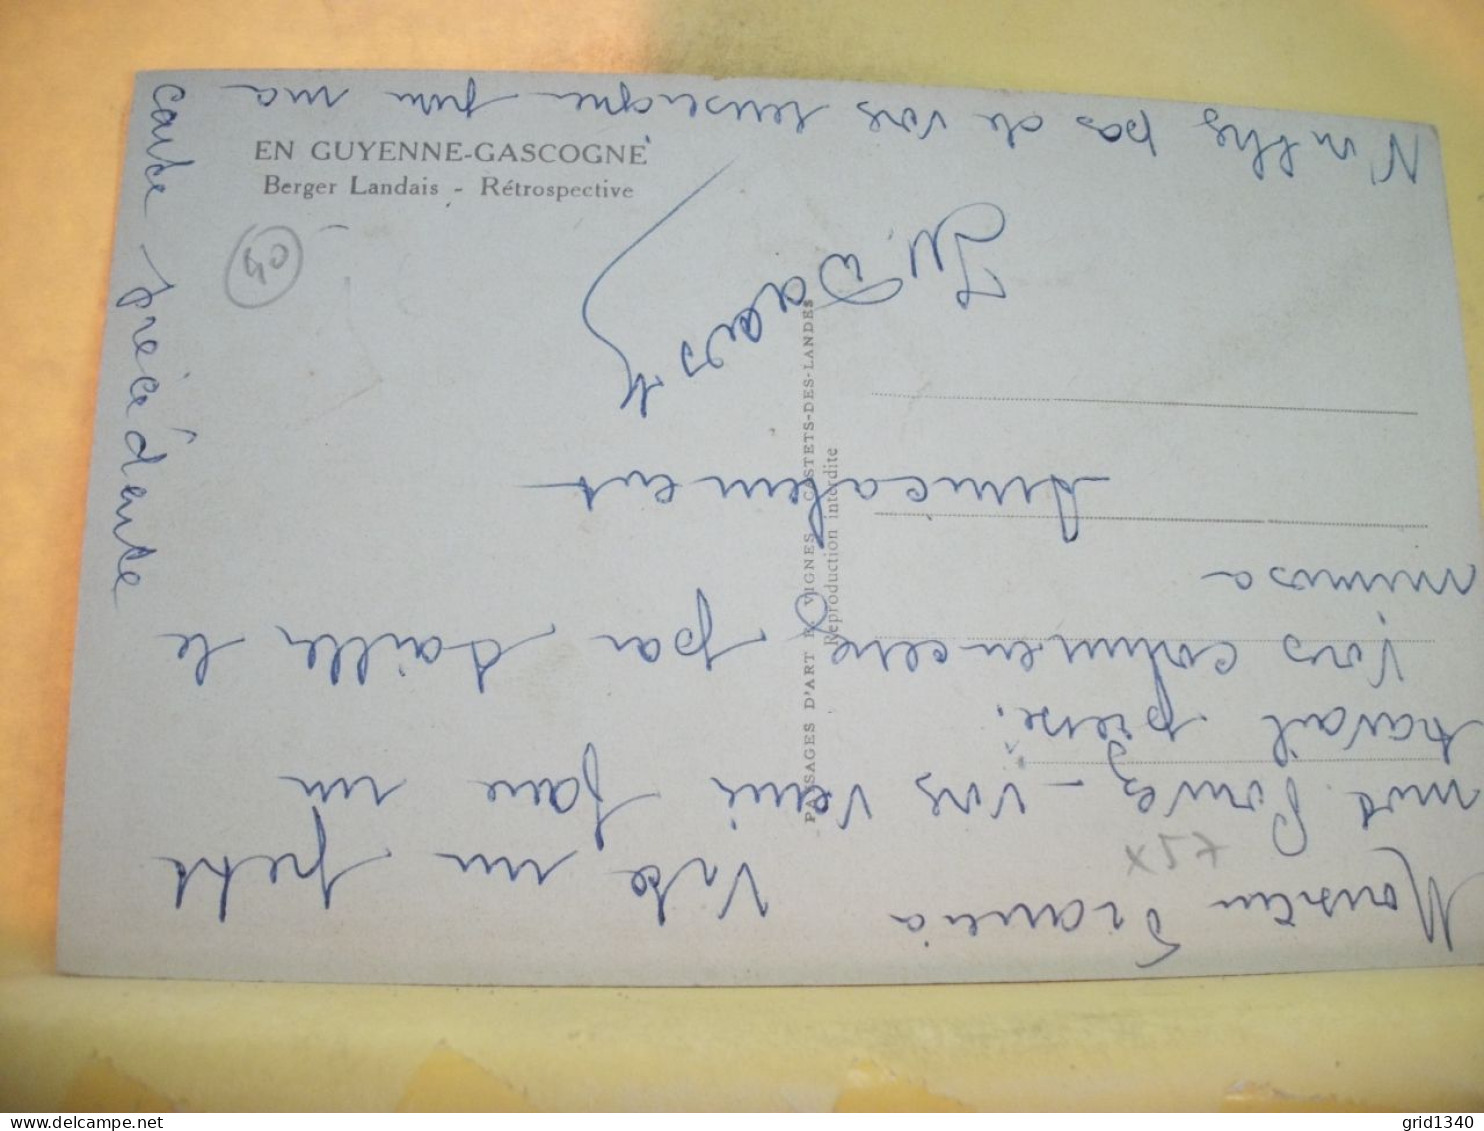 EN GUYENNE-GASCOGNE
Berger Landais - Rétrospective
40
PAYSAGES D'ART E. VIGNES CASTETS-DES-LANDES
Reproduction interdite
Monsieur
Vite un petit
mot. Pouvez-vous venir faire un
travail
Vous commencerez par tailler le
mimosa
Amicalement
N' pas de vous renseigner ma
carte précédente
grid1340